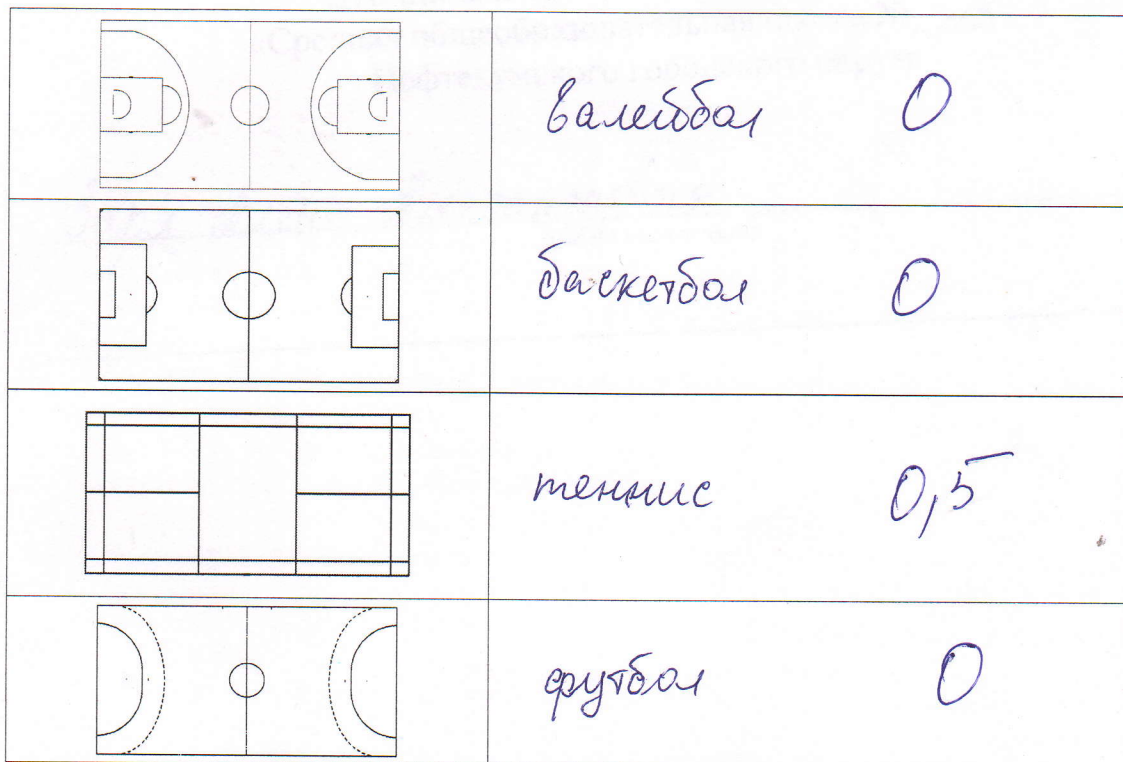 валейбол 0
баскетбол 0
теннис 0,5
футбол 0